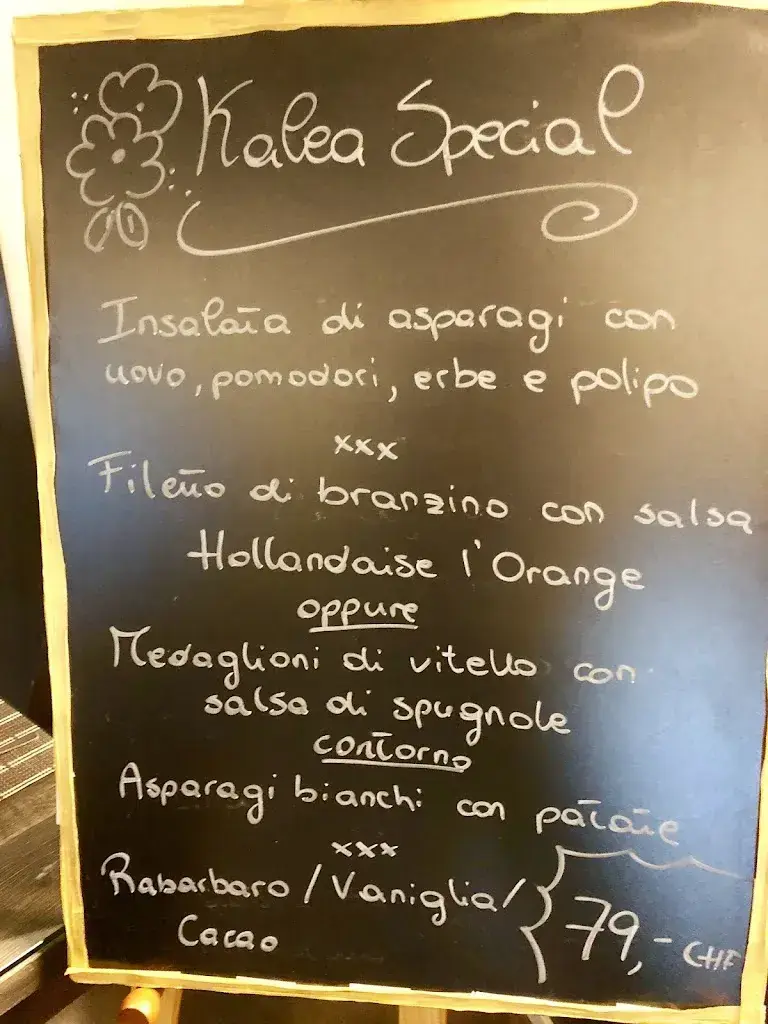 Kalea Special
Insalata di asparagi con
uovo, pomodori, erbe e polipo
xxx
Filetto di branzino con salsa
Hollandaise l'Orange
oppure
Medaglioni di vitello con
salsa di spugnole
contorno
Asparagi bianchi con patate
xxx
Rabarbaro / Vaniglia /
Cacao
79,- CHF